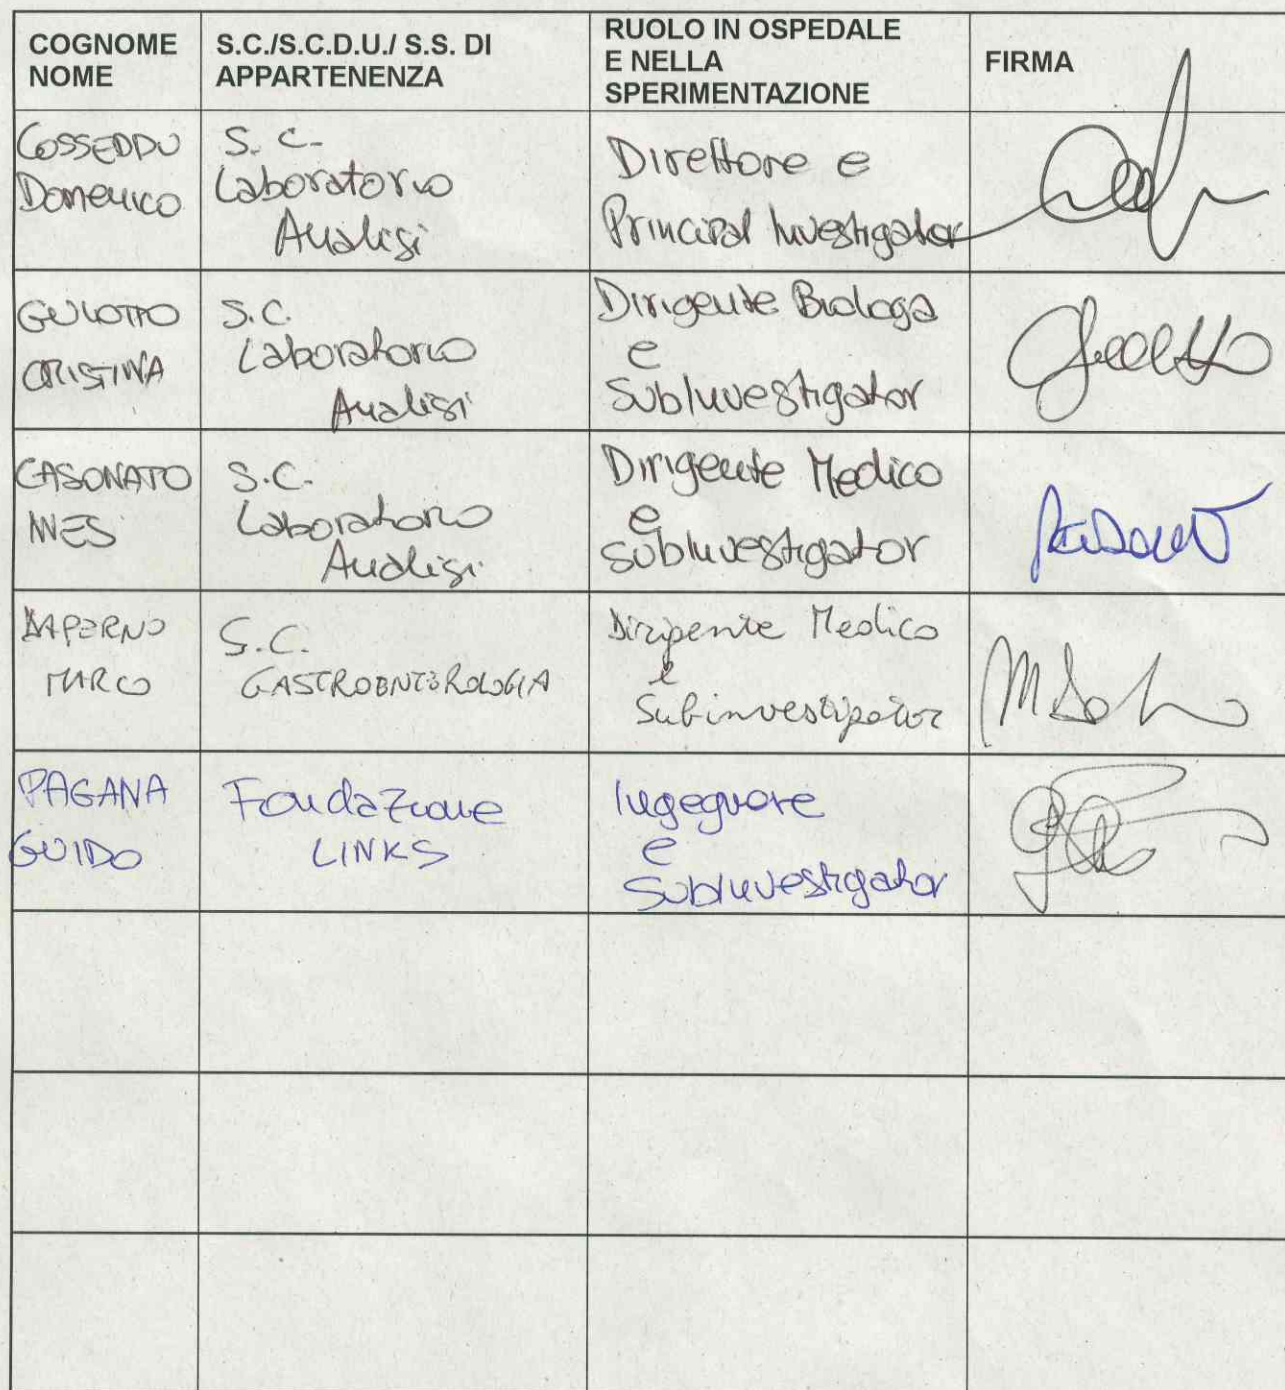 COGNOME
NOME
S.C./S.C.D.U./ S.S. DI
APPARTENENZA
RUOLO IN OSPEDALE
E NELLA
SPERIMENTAZIONE
FIRMA
COSSEDDU
Domenico
S. C.
Laboratorio
Analisi
Direttore e
Principal Investigator
GULOTTO
CRISTINA
S.C.
Laboratorio
Analisi
Dirigente Biologa
e
SubInvestigator
CASONATO
INES
S.C.
Laboratorio
Analisi
Dirigente Medico
e
SubInvestigator
DAPERNO
MARCO
S.C.
GASTROENTEROLOGIA
Dirigente Medico
e
Subinvestigator
PAGANA
GUIDO
Fondazione
LINKS
Ingegnere
e
SubInvestigator